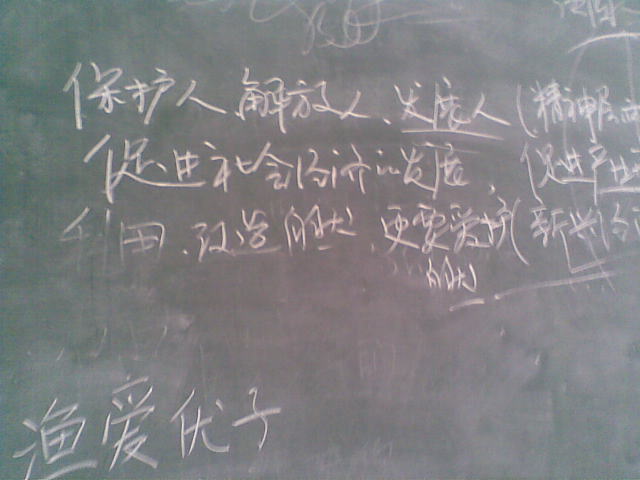 保护人、解放人、发展人(精神层面
促进社会经济的发展、促进产业
利用、改造自然、更要爱护(新兴
自然
渔爱优子